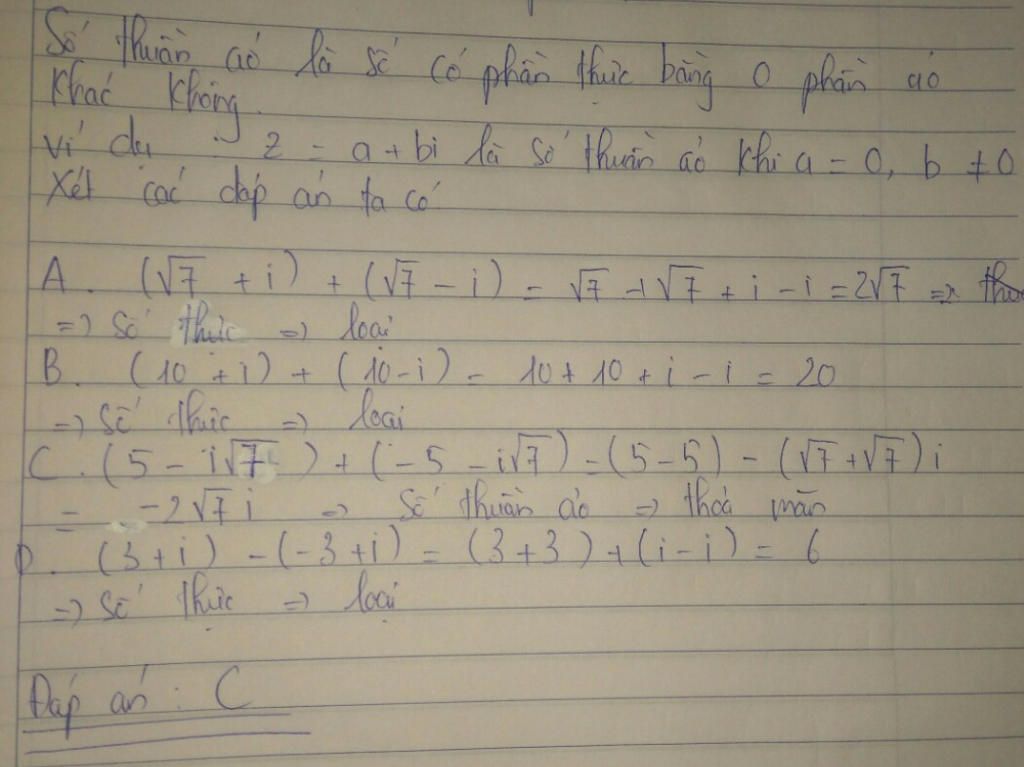 Số thuần ảo là số có phần thực bằng 0 phần ảo
khác không.
ví dụ : z = a + bi là số thuần ảo khi a = 0, b ≠ 0
Xét các đáp án ta có
A. (√7 + i) + (√7 - i) = √7 + √7 + i - i = 2√7 =>
=> Số thực => loại
B. (10 + i) + (10 - i) = 10 + 10 + i - i = 20
=> Số thực => loại
C. (5 - i√7) + (-5 - i√7) = (5 - 5) - (√7 + √7) i
= -2√7 i => Số thuần ảo => thoả mãn
D. (3 + i) - (-3 + i) = (3 + 3) + (i - i) = 6
=> Số thực => loại
Đáp án : C